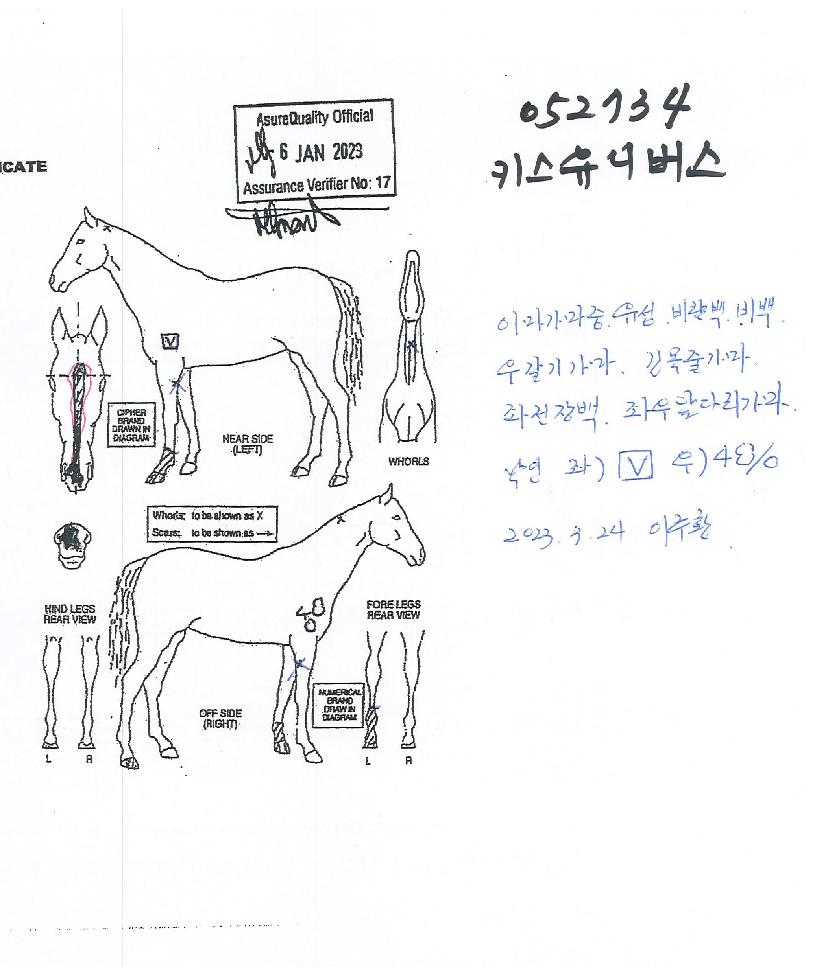 ICATE
AsureQuality Official
6 JAN 2023
Assurance Verifier No: 17
052134
키스유니버스
CIPHER
BRAND
DRAWN IN
DIAGRAM
V
NEAR SIDE
(LEFT)
WHORLS
이마가마중. 유성. 비량백. 비백.
우갈기가마. 긴목줄기마.
좌전장백. 좌우앞다리가마.
낙인 좌) V 우) 48/0
2023. 9. 24 이주환
Whorls; to be shown as X
Scars; to be shown as →
HIND LEGS
REAR VIEW
FORE LEGS
REAR VIEW
48
0
NUMERICAL
BRAND
DRAW IN
DIAGRAM
OFF SIDE
(RIGHT)
L R
L R